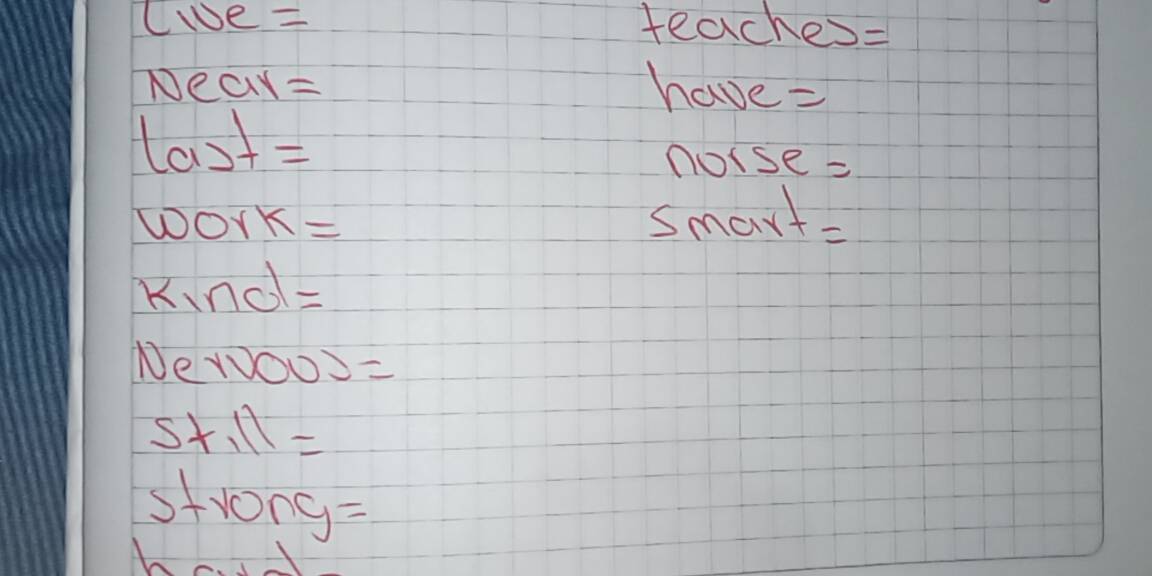 live =
Near =
last =
work =
kind =
Nervous =
still =
strong =
hard =
teaches =
have =
noise =
smart =